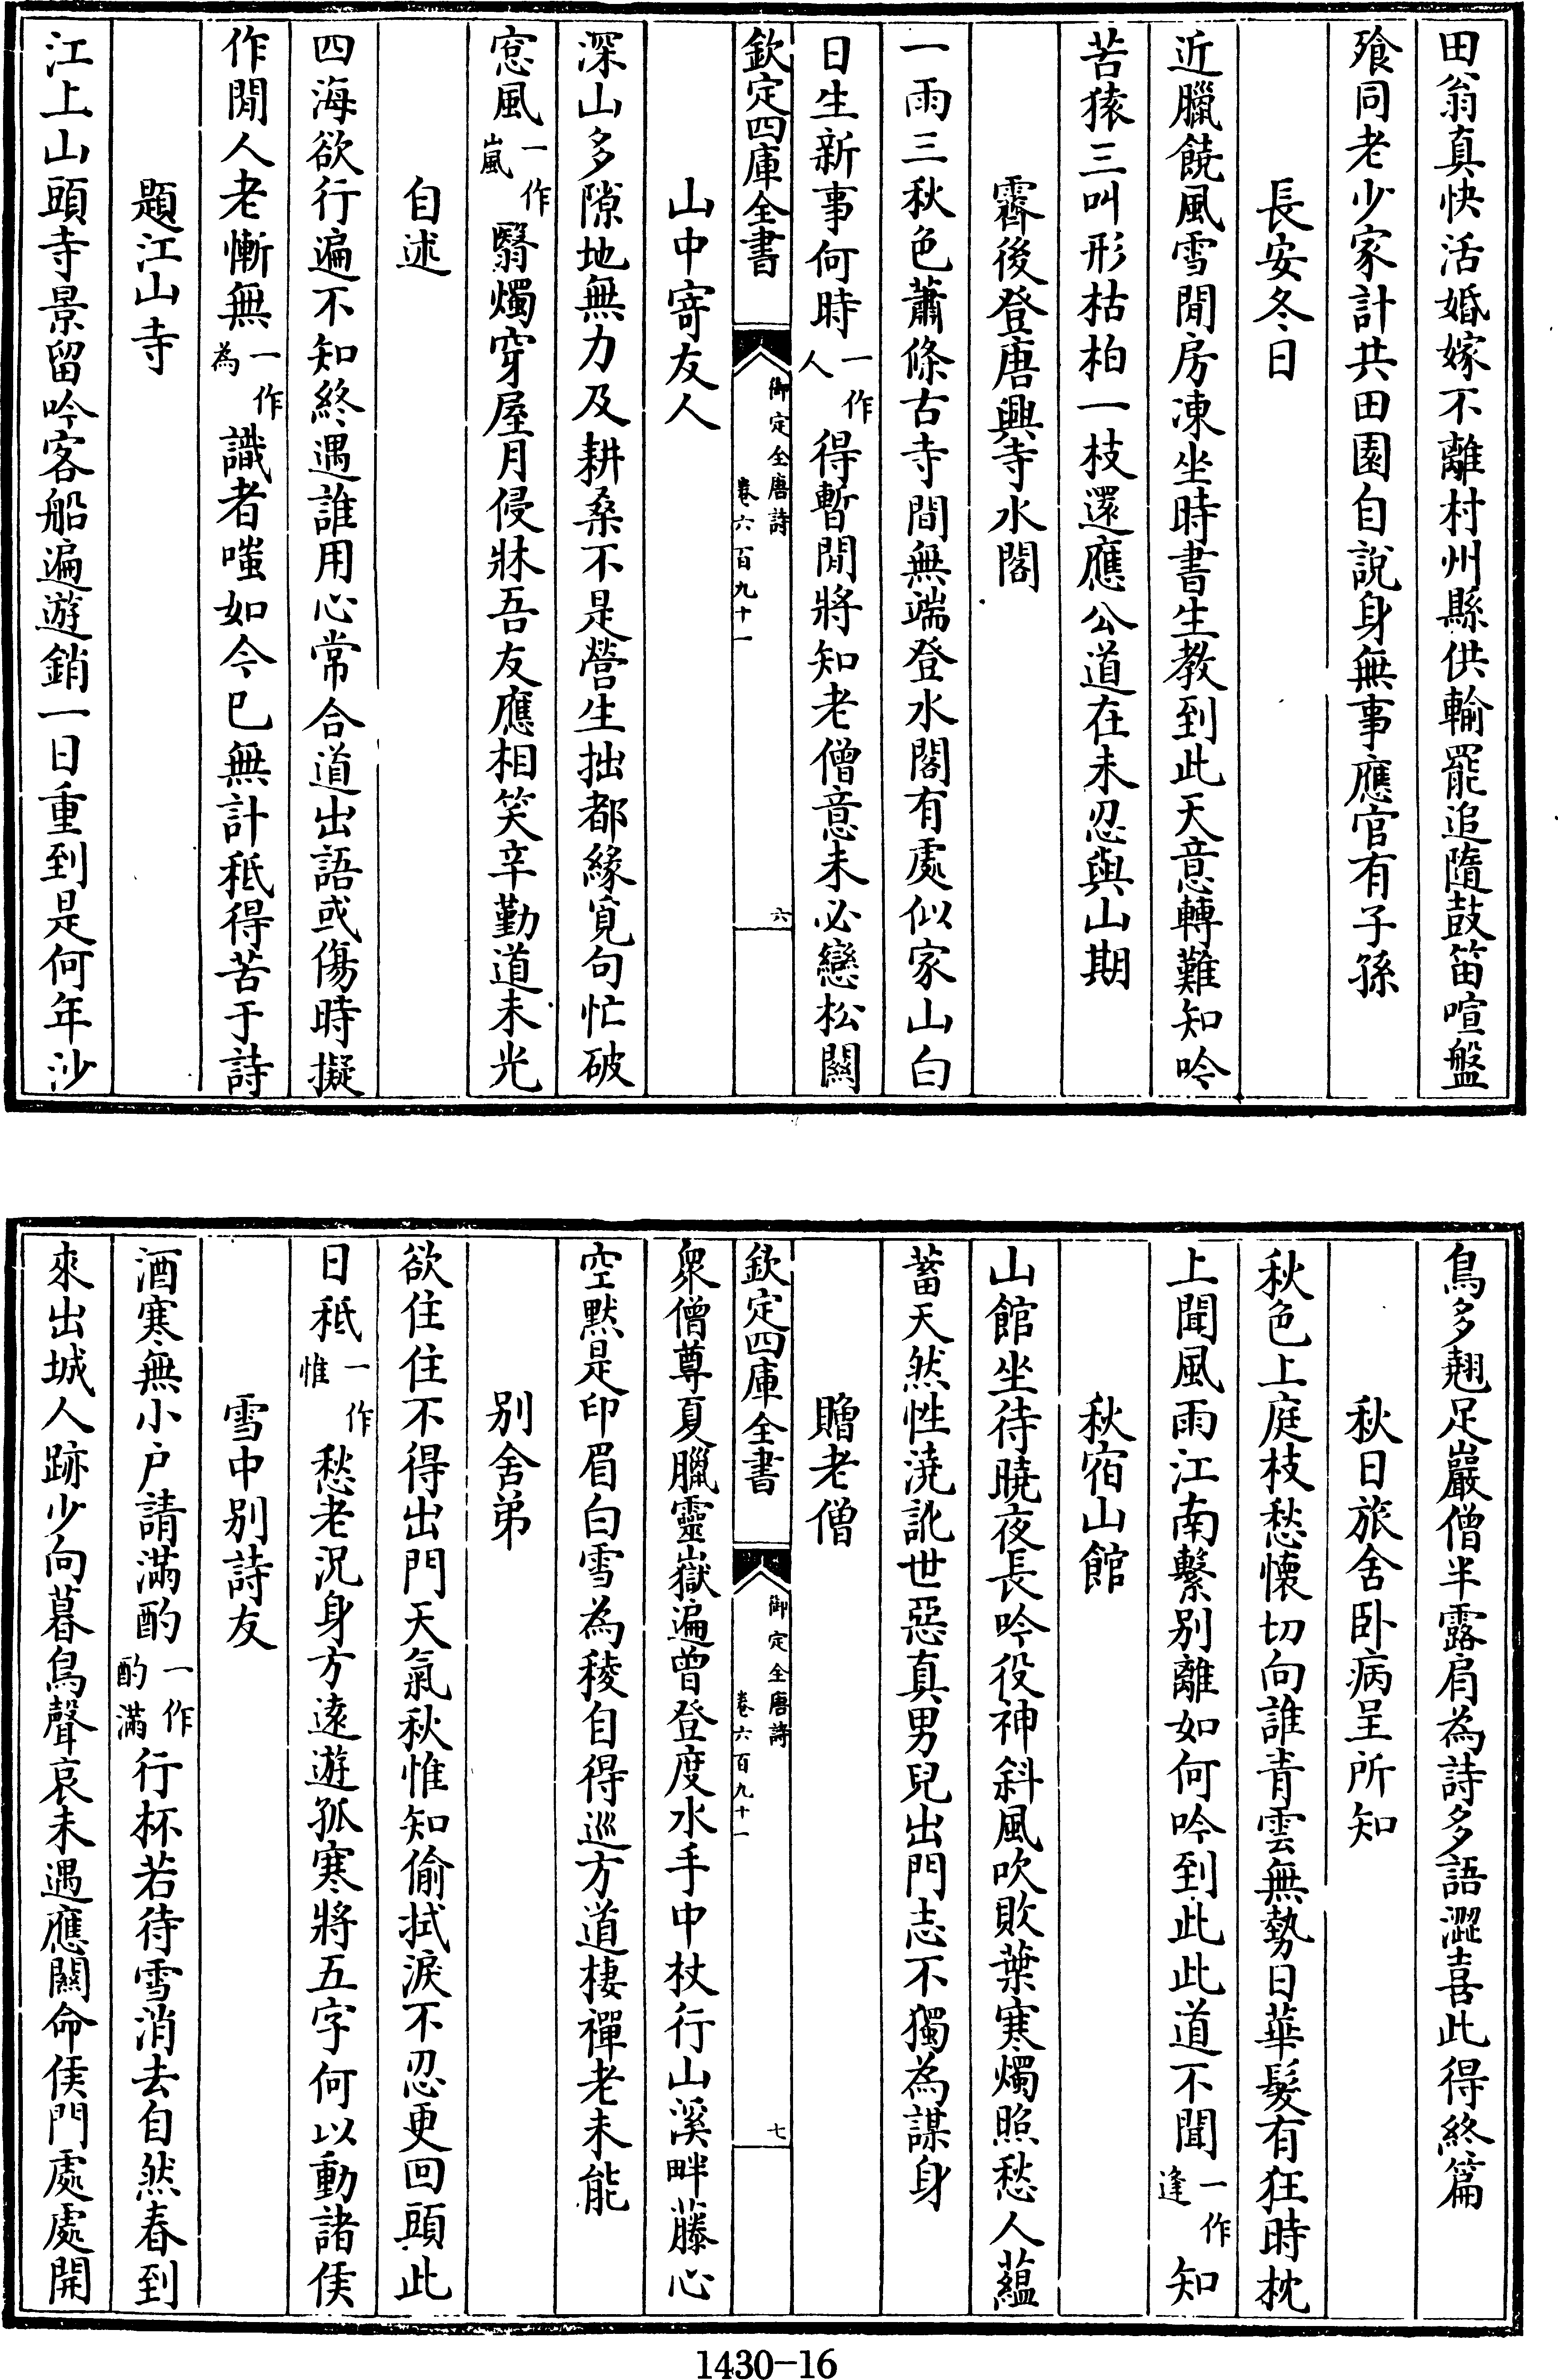 田翁真快活婚嫁不離村州縣供輸罷追隨鼓笛喧盤
飱同老少家計共田園自說身無事應官有子孫
長安冬日
近臘饒風雪閒房凍坐時書生教到此天意轉難知吟
苦猿三叫形枯柏一枝還應公道在未忍與山期
霽後登唐興寺水閣
一雨三秋色蕭條古寺間無端登水閣有處似家山白
日生新事何時一作人得暫閒將知老僧意未必戀松關
欽定四庫全書
御定全唐詩
卷六百九十一
六
山中寄友人
深山多隙地無力及耕桑不是營生拙都緣覓句忙破
窓風一作嵐翳燭穿屋月侵牀吾友應相笑辛勤道未光
自述
四海欲行遍不知終遇誰用心常合道出語或傷時擬
作閒人老慚無一作為識者嗤如今已無計秪得苦于詩
題江山寺
江上山頭寺景留吟客船遍遊銷一日重到是何年沙
鳥多翹足巖僧半露肩為詩多語澀喜此得終篇
秋日旅舍卧病呈所知
秋色上庭枝愁懷切向誰青雲無勢日華髮有狂時枕
上聞風雨江南繫别離如何吟到此此道不聞一作逢知
秋宿山館
山館坐待曉夜長吟役神斜風吹敗葉寒燭照愁人蘊
蓄天然性澆訛世惡真男兒出門志不獨為謀身
贈老僧
欽定四庫全書
御定全唐詩
卷六百九十一
七
衆僧尊夏臘靈嶽遍曾登度水手中杖行山溪畔藤心
空默是印眉白雪為稜自得巡方道棲禪老未能
别舍弟
欲住住不得出門天氣秋惟知偷拭淚不忍更回頭此
日秪一作惟愁老況身方遠遊孤寒將五字何以動諸侯
雪中别詩友
酒寒無小户請滿酌一作酌滿行杯若待雪消去自然春到
來出城人跡少向暮鳥聲哀未遇應關命侯門處處開
1430-16